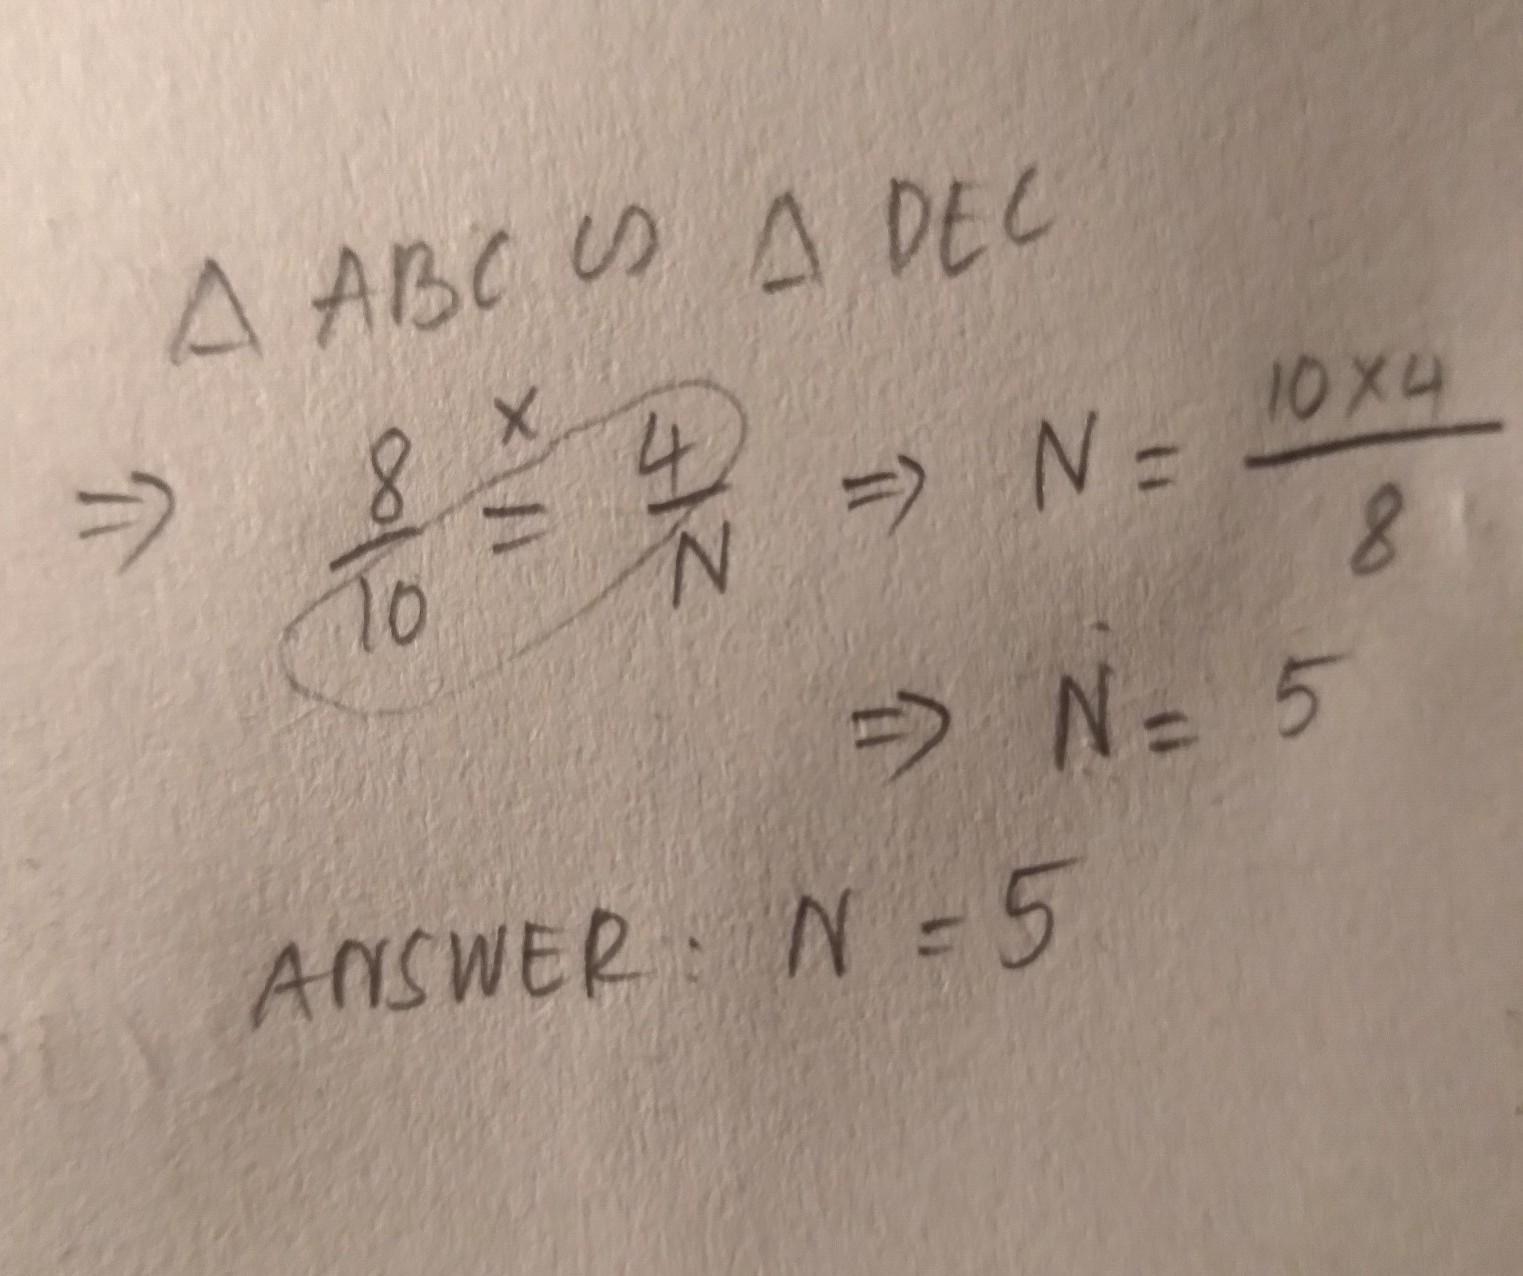 △ ABC ∽ △ DEC
⇒ 8/10 = 4/N ⇒ N = 10×4/8
×
⇒ N = 5
ANSWER: N = 5